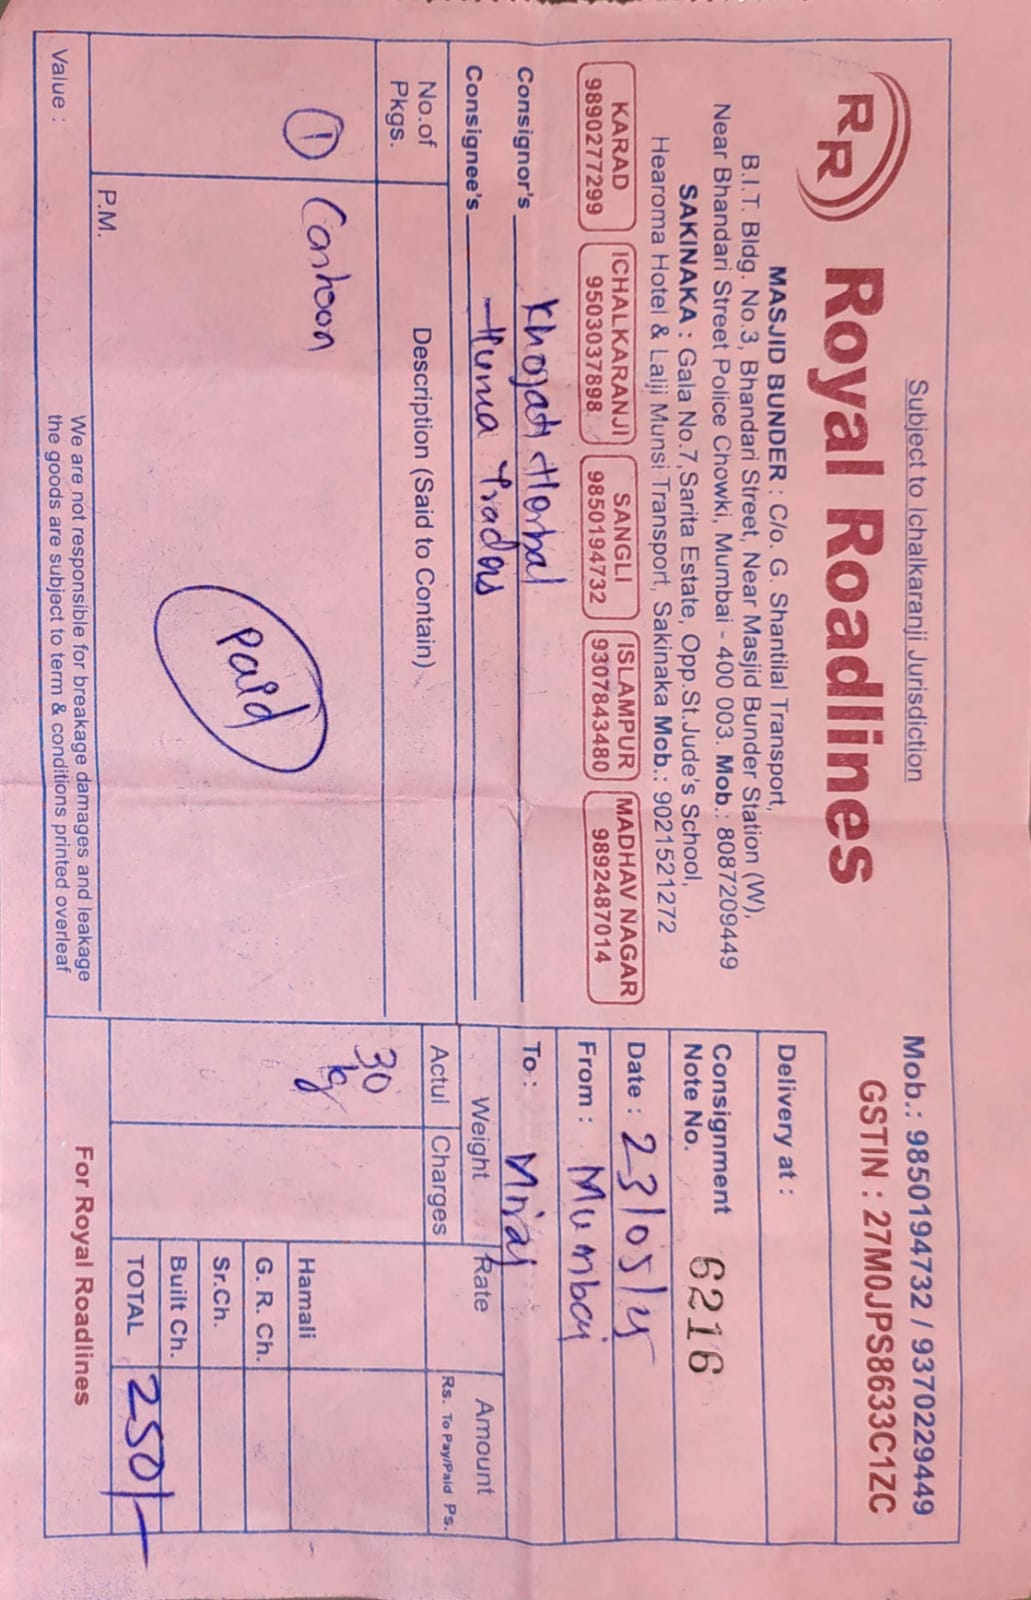 Subject to Ichalkaranji Jurisdiction
Mob.: 9850194732 / 9370229449
GSTIN : 27M0JPS8633C1ZC
RR Royal Roadlines
MASJID BUNDER : C/o. G. Shantilal Transport,
B.I.T. Bldg. No.3, Bhandari Street, Near Masjid Bunder Station (W),
Near Bhandari Street Police Chowki, Mumbai - 400 003. Mob.: 8087209449
SAKINAKA : Gala No.7,Sarita Estate, Opp.St.Jude's School,
Hearoma Hotel & Lalji Munsi Transport, Sakinaka Mob.: 9021521272
KARAD ICHALKARANJI SANGLI ISLAMPUR MADHAV NAGAR
9890277299 9503037898 9850194732 9307843480 9892487014
Delivery at :
Consignment
Note No. 6216
Date : 23/05/25
From : Mumbai
To : Miraj
Consignor's Khojati Herbal
Consignee's Huma Traders
No.of
Pkgs.
Description (Said to Contain)
Weight Rate Amount
Actul Charges Rs. To Pay/Paid Ps.
1 Cartoon
30
kg
Paid
Hamali
G. R. Ch.
Sr.Ch.
Built Ch.
TOTAL 250/-
P.M.
Value :
We are not responsible for breakage damages and leakage
the goods are subject to term & conditions printed overleaf
For Royal Roadlines